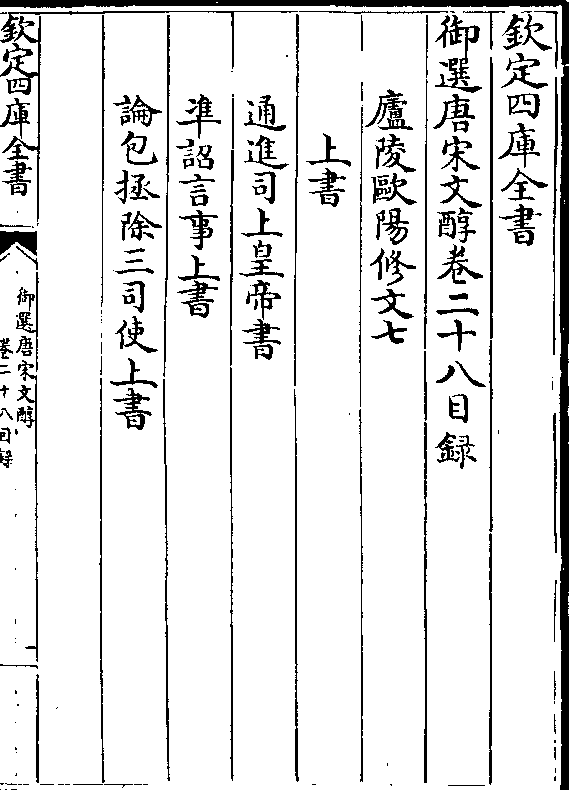 欽定四庫全書
御選唐宋文醇卷二十八目録
廬陵歐陽修文七
上書
通進司上皇帝書
凖詔言事上書
論包拯除三司使上書
欽定四庫全書
御選唐宋文醇
卷二十八目録
一